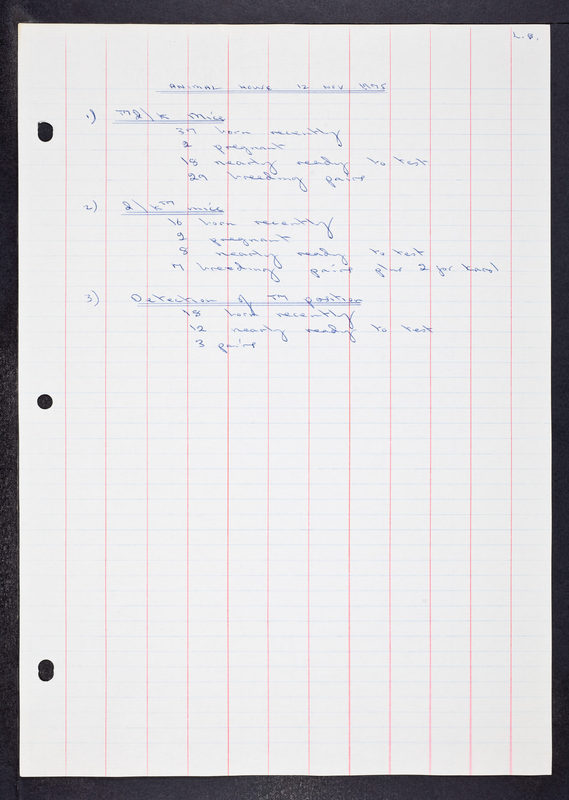 L.B.
ANIMAL HOUSE 12 NOV 1975
1.) TM 2 \ K Mice
37 born recently
2 pregnant
18 nearly ready to test
29 breeding pairs
2) 2 \ K TM mice
16 born recently
2 pregnant
8 nearly ready to test
7 breeding pairs plus 2 for Karol
3) Detection of TM position
18 born recently
12 nearly ready to test
3 pairs